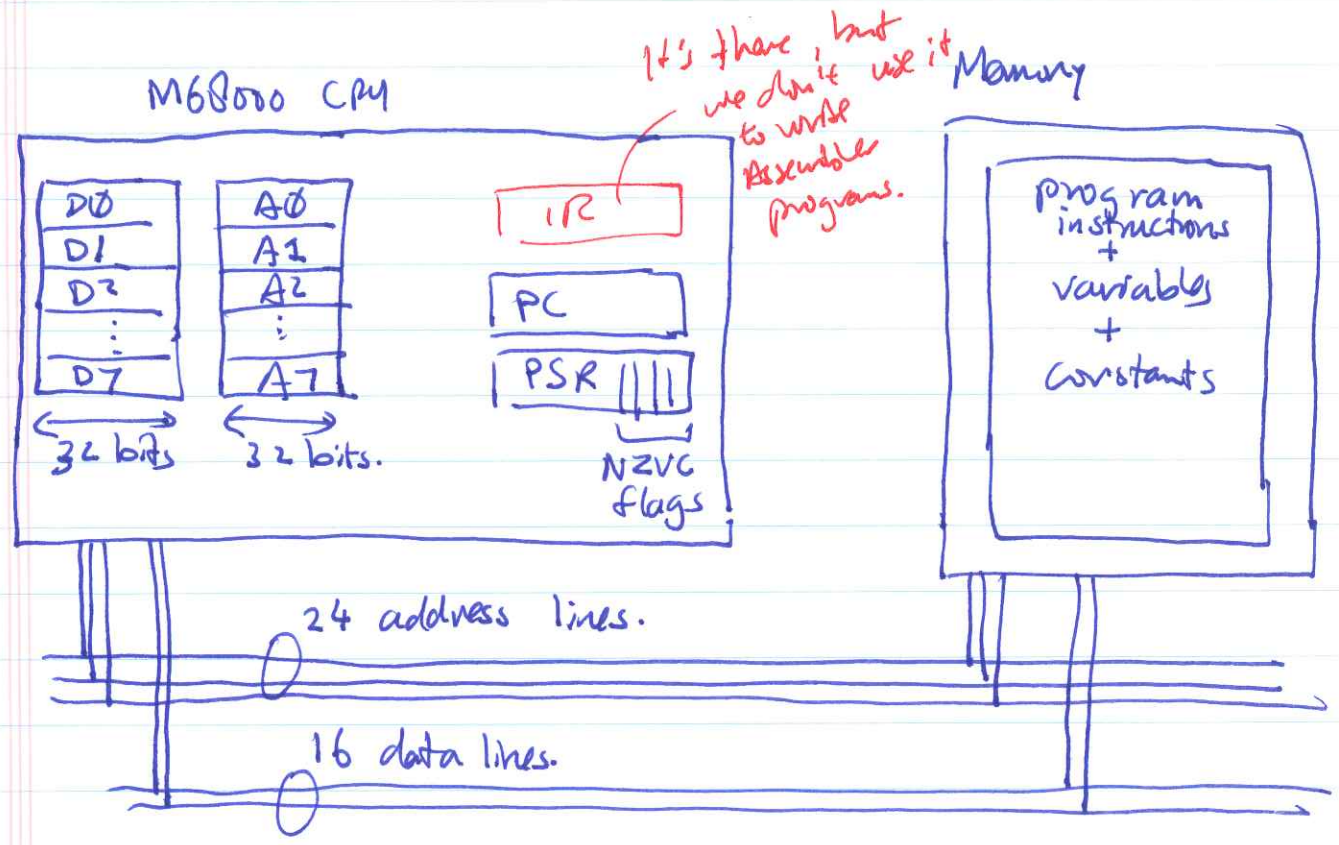 It's there, but
we don't use it
to write
Assembler
programs.
M68000 CPU
Memory
DØ
D1
D2
⋮
D7
32 bits
AØ
A1
A2
⋮
A7
32 bits.
IR
PC
PSR
NZVC
flags
program
instructions
+
variables
+
constants
24 address lines.
16 data lines.